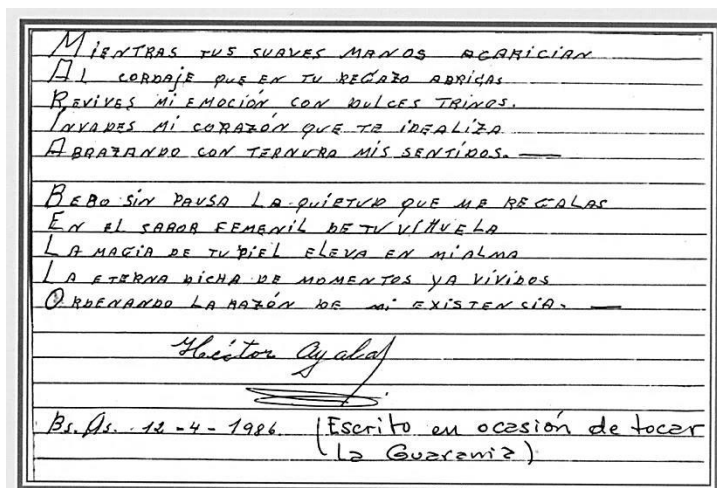 MIENTRAS TUS SUAVES MANOS ACARICIAN
AL CORDAJE QUE EN TU REGAZO ABRIGAS
REVIVES MI EMOCIÓN CON DULCES TRINOS.
INVADES MI CORAZÓN QUE TE IDEALIZA
ABRAZANDO CON TERNURA MIS SENTIDOS. —
BEBO SIN PAUSA LA QUIETUD QUE ME REGALAS
EN EL SABOR FEMENIL DE TU VIHUELA
LA MAGIA DE TU PIEL ELEVA EN MI ALMA
LA ETERNA DICHA DE MOMENTOS YA VIVIDOS
ORDENANDO LA RAZÓN DE MI EXISTENCIA. —
Héctor Ayala
Bs. As. 12-4-1986 (Escrito en ocasión de tocar
La Guarania)